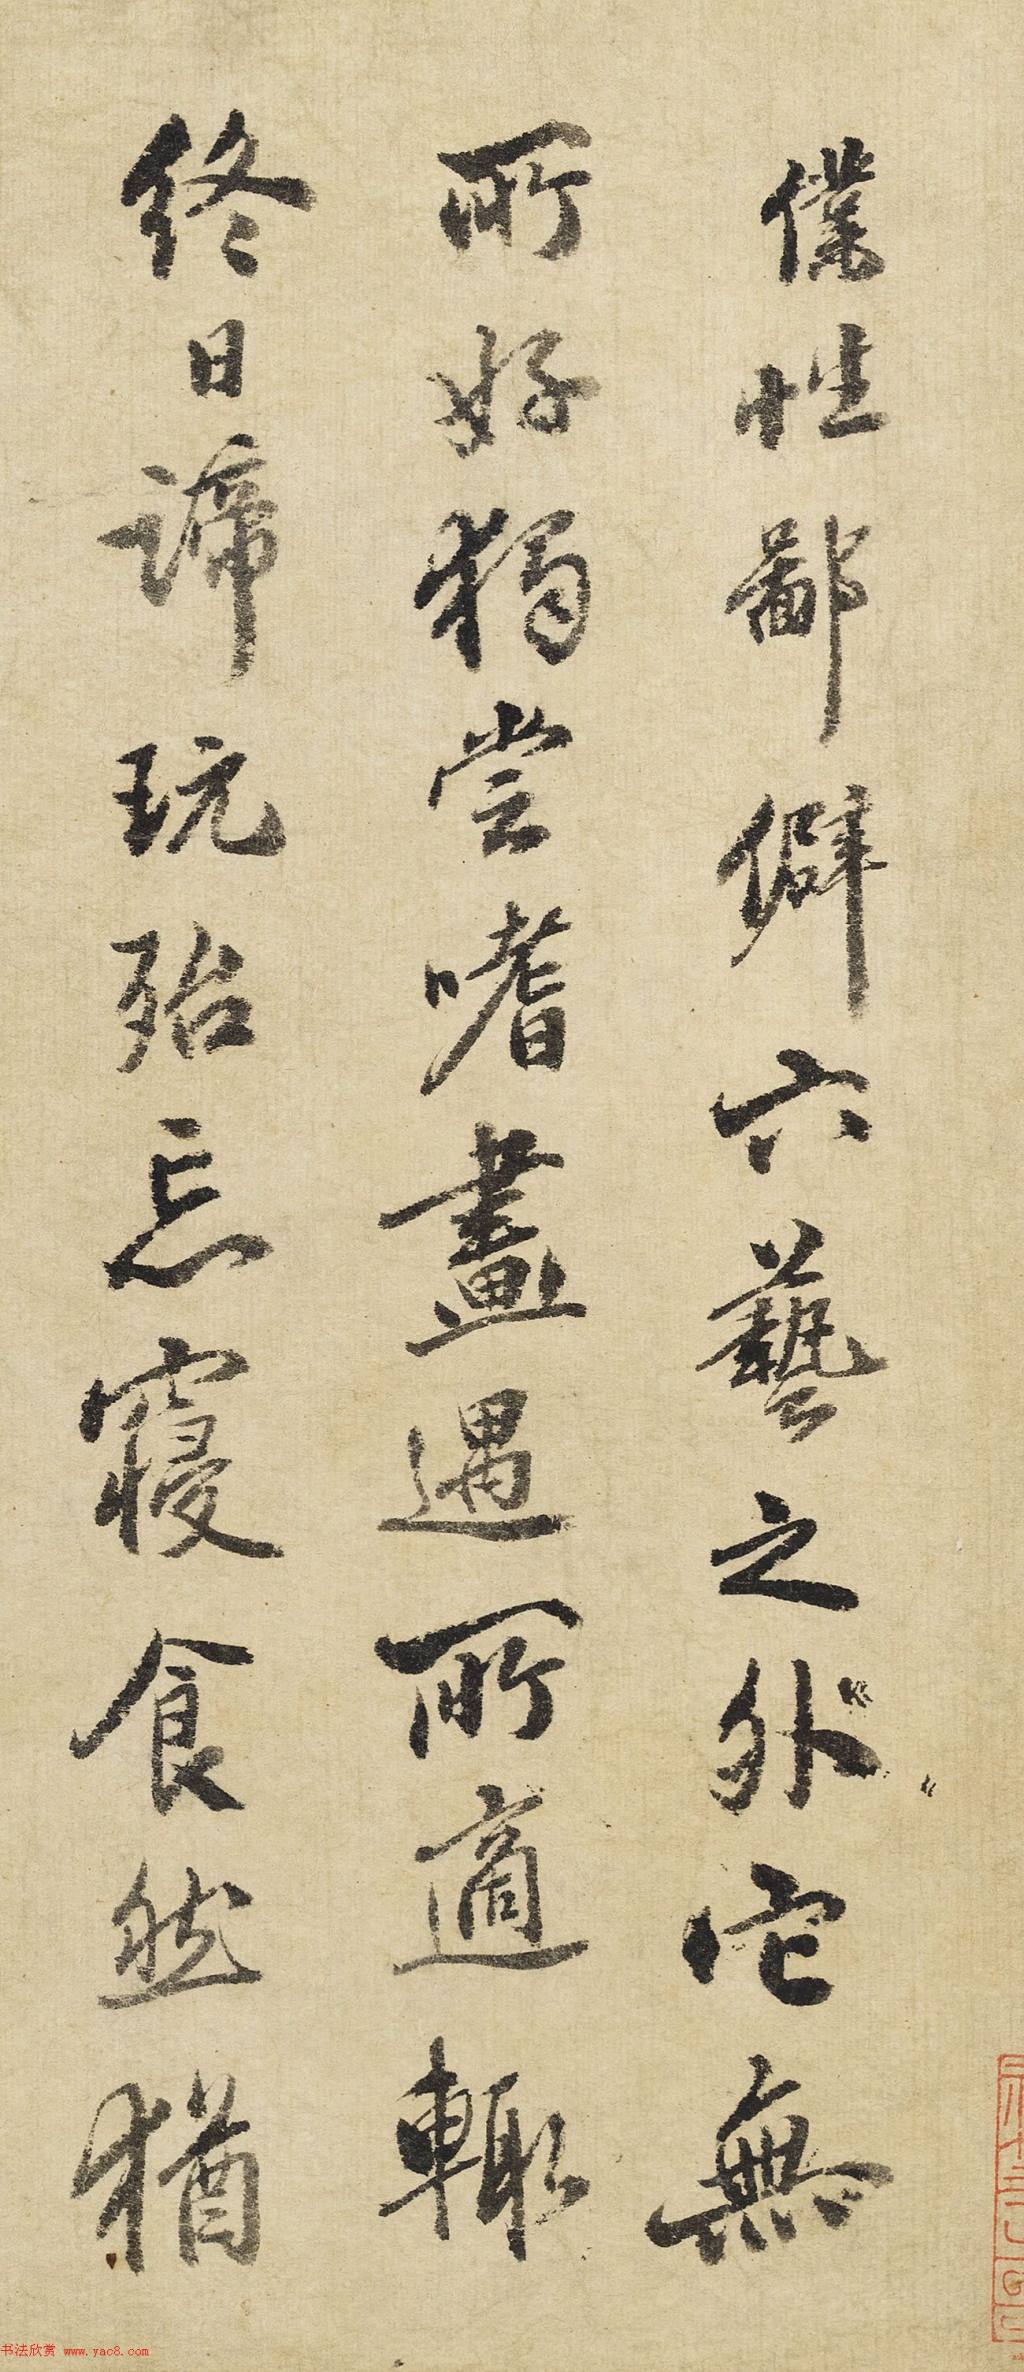 僕性鄙僻六藝之外它無
所好獨尝嗜畫遇所適輙
終日諦玩殆忘寝食然猶
书法欣赏 www.yac8.com